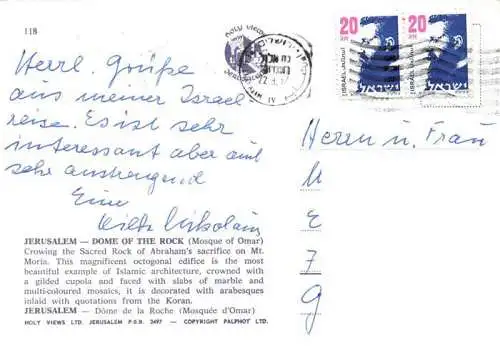 118
Herrl. Grüße
aus meiner Israel
reise. Es ist sehr
interessant aber auch
sehr anstrengend
Eure
JERUSALEM — DOME OF THE ROCK (Mosque of Omar)
Crowing the Sacred Rock of Abraham's sacrifice on Mt.
Moria. This magnificent octogonal edifice is the most
beautiful example of Islamic architecture, crowned with
a gilded cupola and faced with slabs of marble and
multi-coloured mosaics, it is decorated with arabesques
inlaid with quotations from the Koran.
JERUSALEM — Dôme de la Roche (Mosquée d'Omar)
HOLY VIEWS LTD. JERUSALEM P.O.B. 2497 — COPYRIGHT PALPHOT LTD.
holy views
20
ISRAEL
ישראל
20
ISRAEL
ישראל
Herrn u. Frau
M
E
7
g